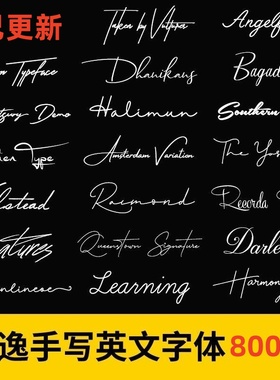 已更新
Taken by Vultures
Angelf
n Typeface
Dhanikans
Bagad
tzury Demo
Halimun
Southern
her Type
Amsterdam Variation
The Yor
lstead
Raimond
Recorda S
atures
Queenstown Signature
Darle
onlineoe
Learning
Harmon
逸手写英文字体 800